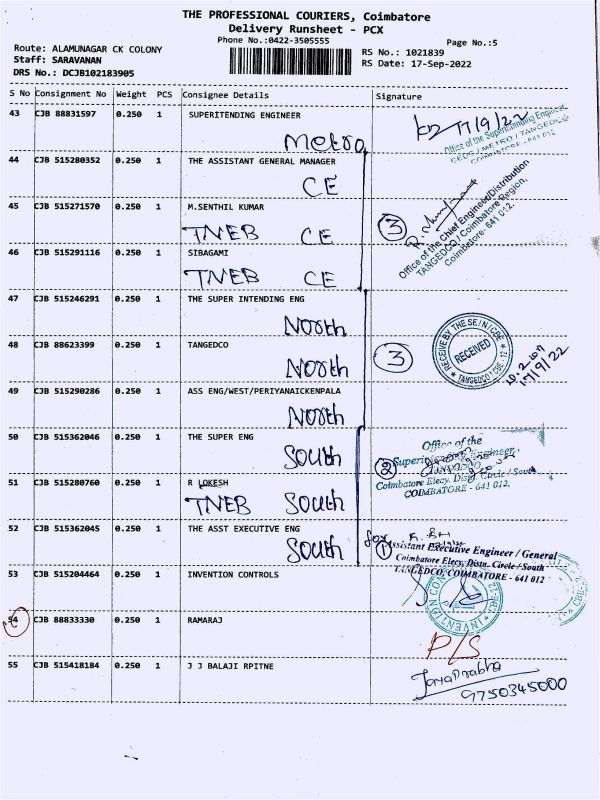 THE PROFESSIONAL COURIERS, Coimbatore
Delivery Runsheet - PCX
Phone No.:0422-3505555
Page No.:5
Route: ALAMUNAGAR CK COLONY
Staff: SARAVANAN
DRS No.: DCJB102183905
RS No.: 1021839
RS Date: 17-Sep-2022
S No Consignment No Weight PCS Consignee Details Signature
43 CJB 88831597 0.250 1 SUPERITENDING ENGINEER
Metro
17/9/22
Office of the Superintending Engineer
CEDC / METRO / TANGEDCO
COIMBATORE - 641 012
44 CJB 515280352 0.250 1 THE ASSISTANT GENERAL MANAGER
CE
45 CJB 515271570 0.250 1 M.SENTHIL KUMAR
TNEB CE
3
Office of the Chief Engineer/Distribution
TANGEDCO / Coimbatore Region,
Coimbatore- 641 012.
46 CJB 515291116 0.250 1 SIBAGAMI
TNEB CE
47 CJB 515246291 0.250 1 THE SUPER INTENDING ENG
North
48 CJB 88623399 0.250 1 TANGEDCO
North
3
RECEIVE BY THE SE/N/CBE
RECEIVED
TANGEDCO / CBE - 12
17/9/22
49 CJB 515290286 0.250 1 ASS ENG/WEST/PERIYANAICKENPALA
North
50 CJB 515362046 0.250 1 THE SUPER ENG
South
2
Office of the
Superintending Engineer,
TANGEDCO
Coimbatore Elecy. Distn. Circle / South
COIMBATORE - 641 012.
51 CJB 515280760 0.250 1 R LOKESH
TNEB South
52 CJB 515362045 0.250 1 THE ASST EXECUTIVE ENG
South
1
for
Assistant Executive Engineer / General
Coimbatore Elecy. Distn. Circle / South
TANGEDCO, COIMBATORE - 641 012
53 CJB 515204464 0.250 1 INVENTION CONTROLS
INVENTION CON
54 CJB 88833330 0.250 1 RAMARAJ
P/S
55 CJB 515418184 0.250 1 J J BALAJI RPITNE
Jayaprabha
9750345000